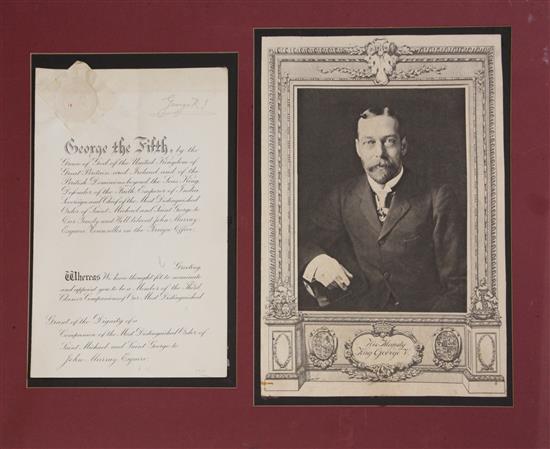 George R.I.
George the Fifth, by the
Grace of God of the United Kingdom of
Great Britain and Ireland and of the
British Dominions beyond the Seas King
Defender of the Faith Emperor of India
Sovereign and Chief of the Most Distinguished
Order of Saint Michael and Saint George to
Our Trusty and Well beloved John Murray
Esquire Counsellor in the Foreign Office
Greeting
Whereas We have thought fit to nominate
and appoint you to be a Member of the Third
Class or Companion of Our Most Distinguished
Grant of the Dignity of a
Companion of the Most Distinguished Order of
Saint Michael and Saint George to
John Murray Esquire
His Majesty
King George V.